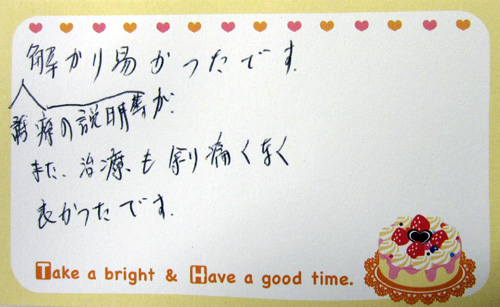 解かり易かったです。
診療の説明等が、
また、治療も余り痛くなく
良かったです。
Take a bright & Have a good time.